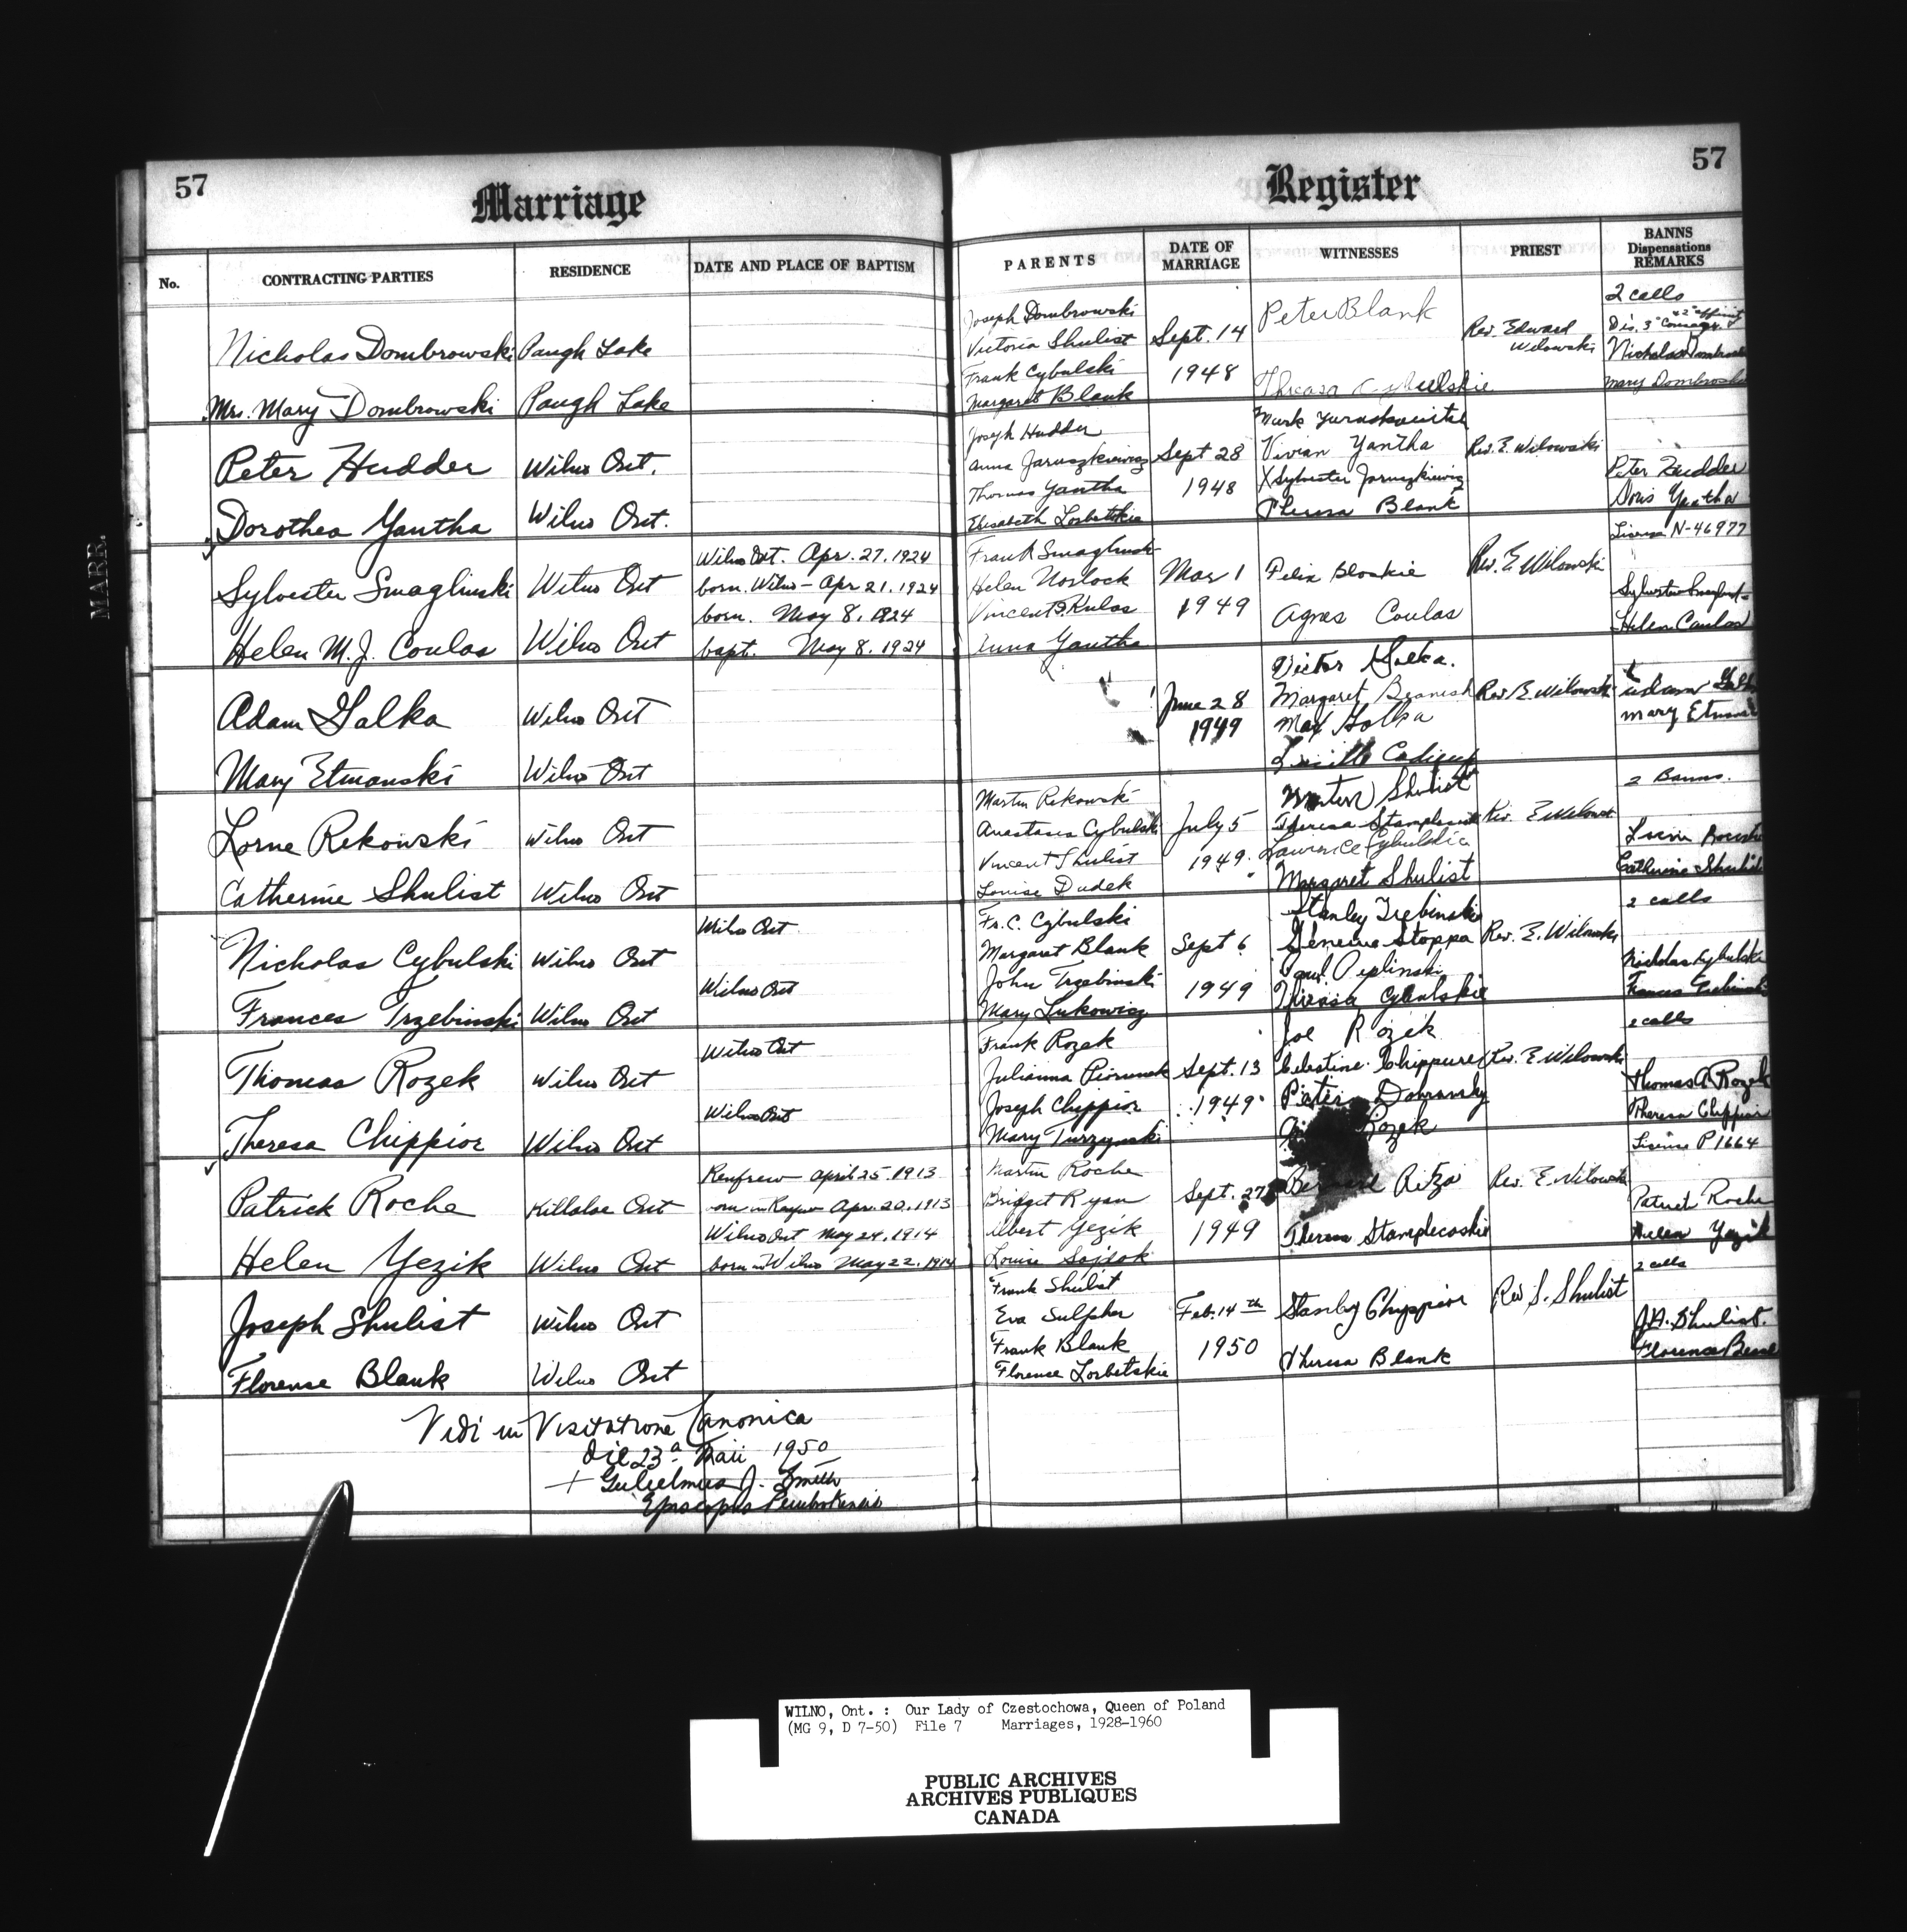 MARR.
57
Marriage
Register
57
No.
CONTRACTING PARTIES
RESIDENCE
DATE AND PLACE OF BAPTISM
PARENTS
DATE OF MARRIAGE
WITNESSES
PRIEST
BANNS Dispensations REMARKS
Nicholas Dombrowski Paugh Lake
Mrs. Mary Dombrowski Paugh Lake
Joseph Dombrowski
Victoria Shulist
Frank Cybulski
Margaret Blank
Sept. 14
1948
Peter Blank
Rev. Edward
Wilowski
2 calls
Mary
Peter Hudder Wilno Ont.
Dorothea Yantha Wilno Ont.
Joseph Hudder
Anna Jaruszkiewicz
Thomas Yantha
Elisabeth Lorbetskie
Sept 28
1948
Vivian Yantha
X Sylvester Jaruszkiewicz
Theresa Blank
Rev. E. Wilowski
Peter Hudder
Doris Yantha
Sylvester Smaglinski Wilno Ont
Helen M. J. Coulas Wilno Ont
Wilno Ont. Apr. 27. 1924
born. Wilno - Apr 21. 1924
born. May 8. 1924
bapt. May 8. 1924
Frank Smaglinski
Helen Norlock
Vincent Kulas
Anna Yantha
Mar 1
1949
Felix Bloskie
Agnes Coulas
Rev. E Wilowski
License N-46977
Helen Coulas
Adam Galka Wilno Ont
Mary Etmanski Wilno Ont
June 28
1949
Victor Golka.
Margaret
Max Golka
Rev E Wilowski
Mary
Lorne Rekowski Wilno Ont
Catherine Shulist Wilno Ont
Martin Rekowski
Anastasia Cybulski
Vincent Shulist
Louise Dudek
July 5
1949.
Shulist
Theresa
Lawrence Cybulskie
Margaret Shulist
Rev. E Wilowski
2 Banns.
Catherine
Nicholas Cybulski Wilno Ont
Frances Trzebinski Wilno Ont
Wilno Ont
Wilno Ont
Fr. C. Cybulski
Margaret Blank
John Trzebinski
Mary Lukowicz
Sept 6
1949
Stanley Trebinskie
Geneva Stoppa
Paul Peplinski
Theresa Cybulskie
Rev. E. Wilowski
2 calls
Nicholas Cybulski
Frances
Thomas Rozek Wilno Ont
Theresa Chippior Wilno Ont
Wilno Ont
Wilno Ont
Frank Rozek
Julianna Piorunek
Joseph Chippior
Mary Turzynski
Sept. 13
1949
Joe Rozek
Celestine Chippure
Peter Dombransky
Rozek
Rev. E Wilowski
2 calls
Thomas A Rozek
Theresa Chippior
Patrick Roche Killaloe Ont
Helen Yezik Wilno Ont
Renfrew april 25. 1913
born in Renfrew Apr. 20. 1913
Wilno Ont May 24. 1914
born in Wilno May 22. 1914
Martin Roche
Bridget Ryan
Albert Yezik
Louise
Sept. 27
1949
Bernard Ritza
Theresa Stamplecoskie
Rev. E. Wilowski
License P 1664
Patrick Roche
Helen Yezik
Joseph Shulist Wilno Ont
Florense Blank Wilno Ont
Frank Shulist
Eva Sulpher
Frank Blank
Florense Lorbetskie
Feb. 14th
1950
Stanley Chippior
Theresa Blank
Rev S. Shulist
2 calls
J.A. Shulist.
Florence
Vidi in Visitatione Canonica
die 23a Maii 1950
+ Gulielmus J. Smith
Episcopus Pembrokensis
WILNO, Ont. : Our Lady of Czestochowa, Queen of Poland
(MG 9, D 7-50) File 7 Marriages, 1928-1960
PUBLIC ARCHIVES
ARCHIVES PUBLIQUES
CANADA